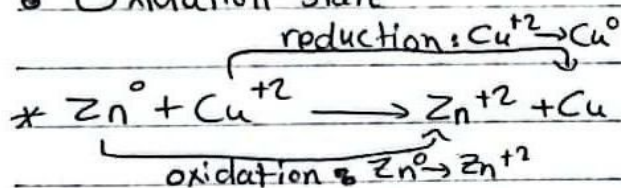 Oxidation State
reduction: Cu⁺²→Cu⁰
* Zn⁰ + Cu⁺² → Zn⁺² + Cu
oxidation: Zn⁰→Zn⁺²